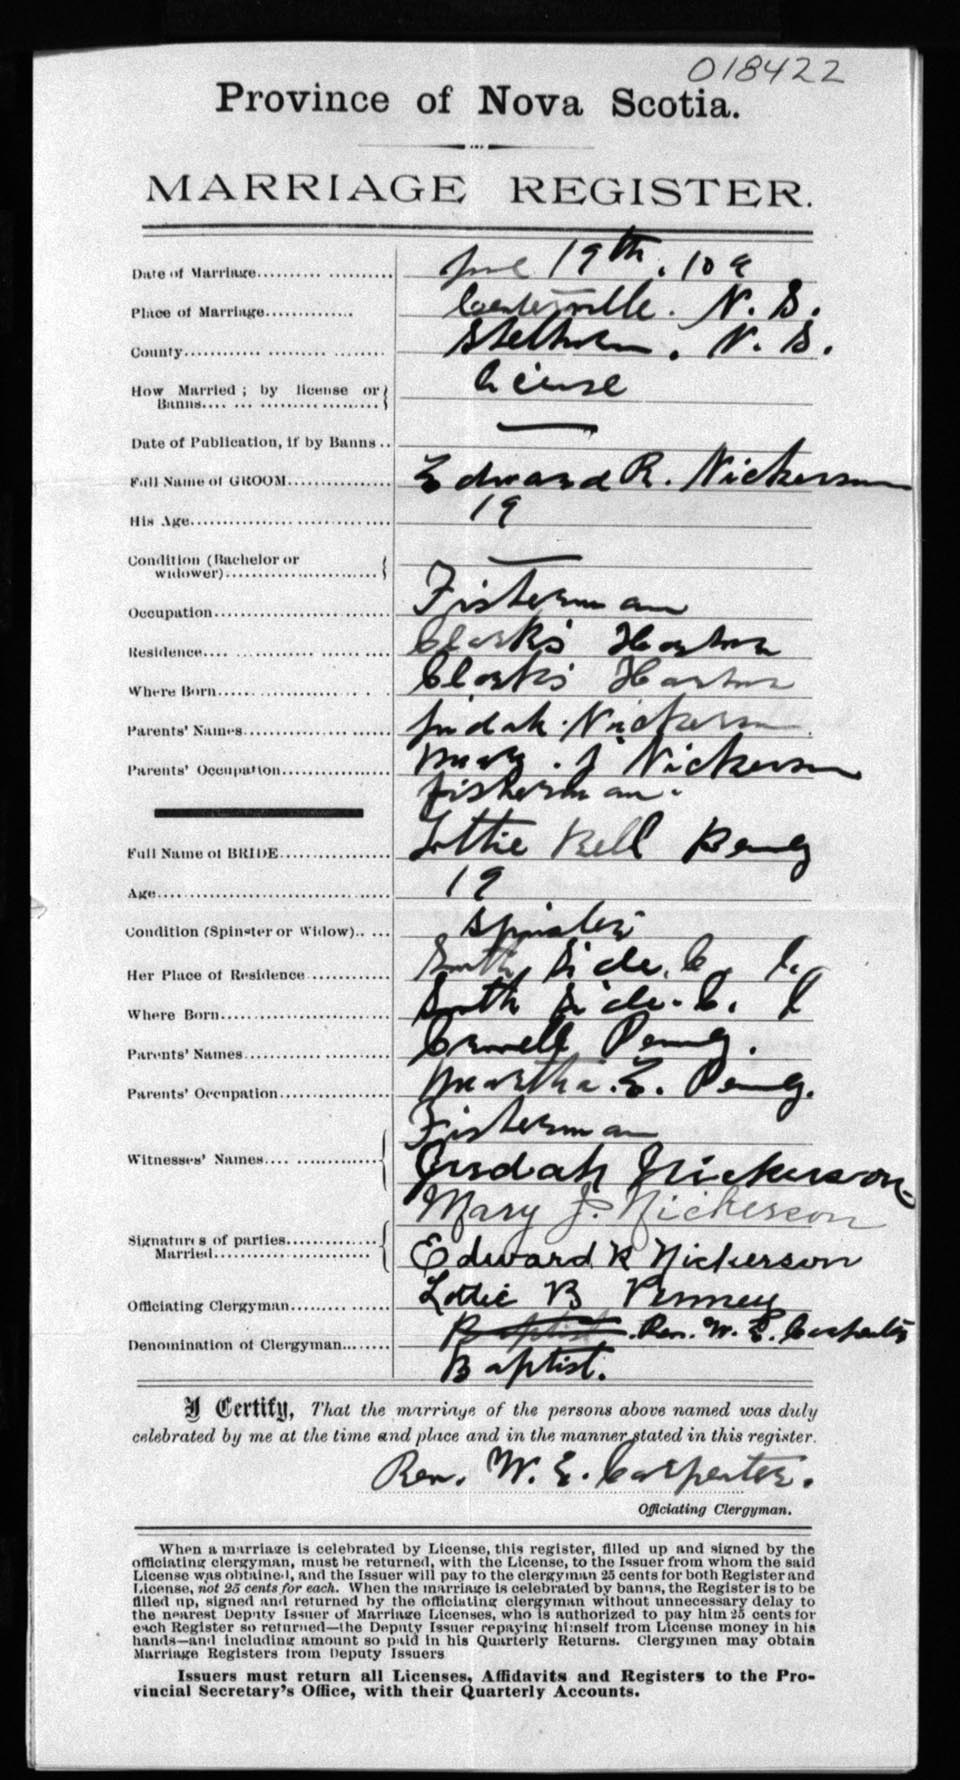 018422
Province of Nova Scotia.
MARRIAGE REGISTER.
Date of Marriage.................... 19th, 10 9
Place of Marriage............. Centerville. N. S.
County.................... Shelburne. N. S.
How Married; by license or } License
Banns.................... }
Date of Publication, if by Banns .. —
Full Name of GROOM............... Edward R. Nickerson
His Age.............................. 19
Condition (Bachelor or { —
widower)........................ {
Occupation......................... Fisherman
Residence.... ............... Clarks Harbor
Where Born.... ............... Clarks Harbor
Parents' Names.................... Judah Nickerson
Parents' Occupation............... Mary. J Nickerson
fisherman.
Full Name of BRIDE............... Lottie Bell Penny
Age................................... 19
Condition (Spinster or Widow).. ... spinster
Her Place of Residence ........... South Side. C. I.
Where Born......................... South Side. C. I
Parents' Names.................... Penny.
Parents' Occupation............... Martha. E. Penny.
Fisherman
Witnesses' Names.... ............ { Judah Nickerson
Mary J. Nickerson
Signatures of parties............. {
Married........................ { Edward R Nickerson
Officiating Clergyman............ Lottie B Penney
Baptist. Rev. W. E. Carpenter
Denomination of Clergyman....... Baptist.
I Certify, That the marriage of the persons above named was duly
celebrated by me at the time and place and in the manner stated in this register.
Rev. W. E. Carpenter.
Officiating Clergyman.
When a marriage is celebrated by License, this register, filled up and signed by the
officiating clergyman, must be returned, with the License, to the Issuer from whom the said
License was obtained, and the Issuer will pay to the clergyman 25 cents for both Register and
License, not 25 cents for each. When the marriage is celebrated by banns, the Register is to be
filled up, signed and returned by the officiating clergyman without unnecessary delay to
the nearest Deputy Issuer of Marriage Licenses, who is authorized to pay him 25 cents for
each Register so returned—the Deputy Issuer repaying himself from License money in his
hands—and including amount so paid in his Quarterly Returns. Clergymen may obtain
Marriage Registers from Deputy Issuers
Issuers must return all Licenses, Affidavits and Registers to the Pro-
vincial Secretary's Office, with their Quarterly Accounts.